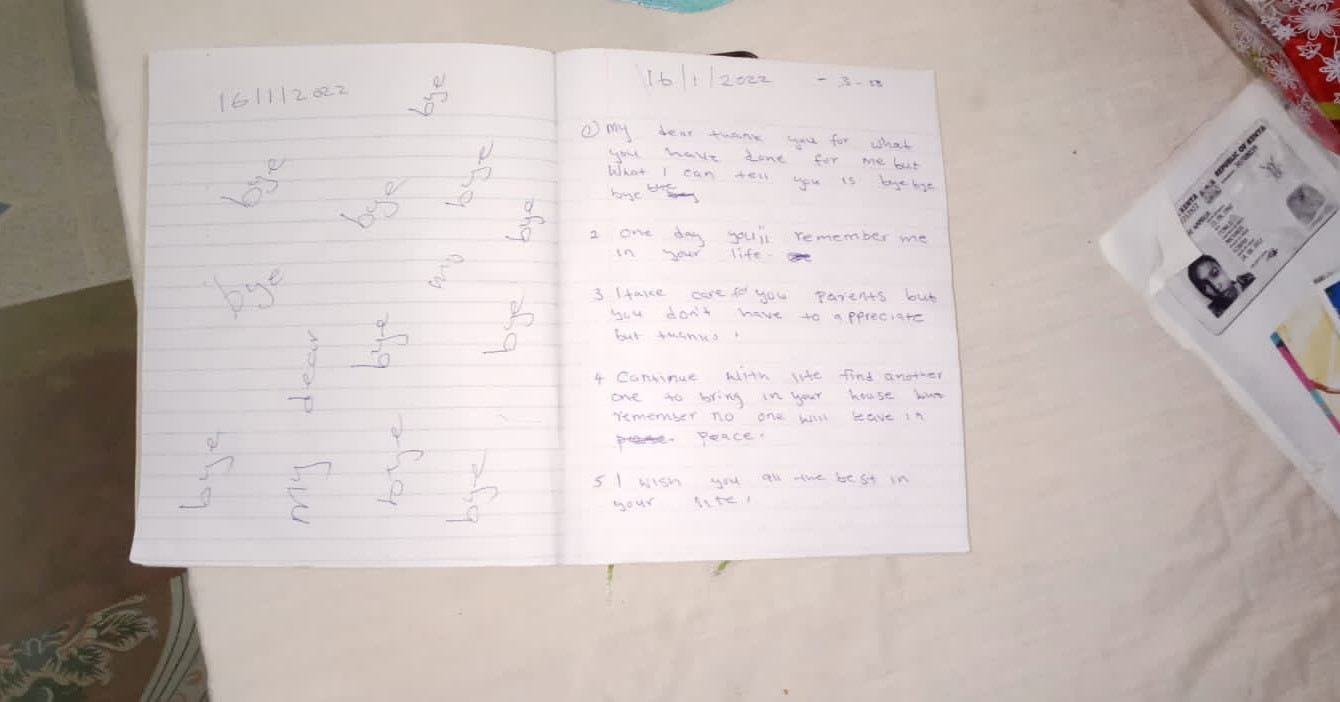 16/1/2022
bye
bye
bye
bye
bye
bye
my dear
bye
bye
bye
bye
bye
16/1/2022 - 3-
1) My dear thank you for what
you have done for me but
What I can tell you is bye bye
bye bye
2 one day you'll remember me
in your life.
3 I take care for you parents but
you don't have to appreciate
but thanks.
4 Continue with life find another
one to bring in your house but
remember no one will leave in
peace.
5 I wish you all the best in
your life.
REPUBLIC OF KENYA